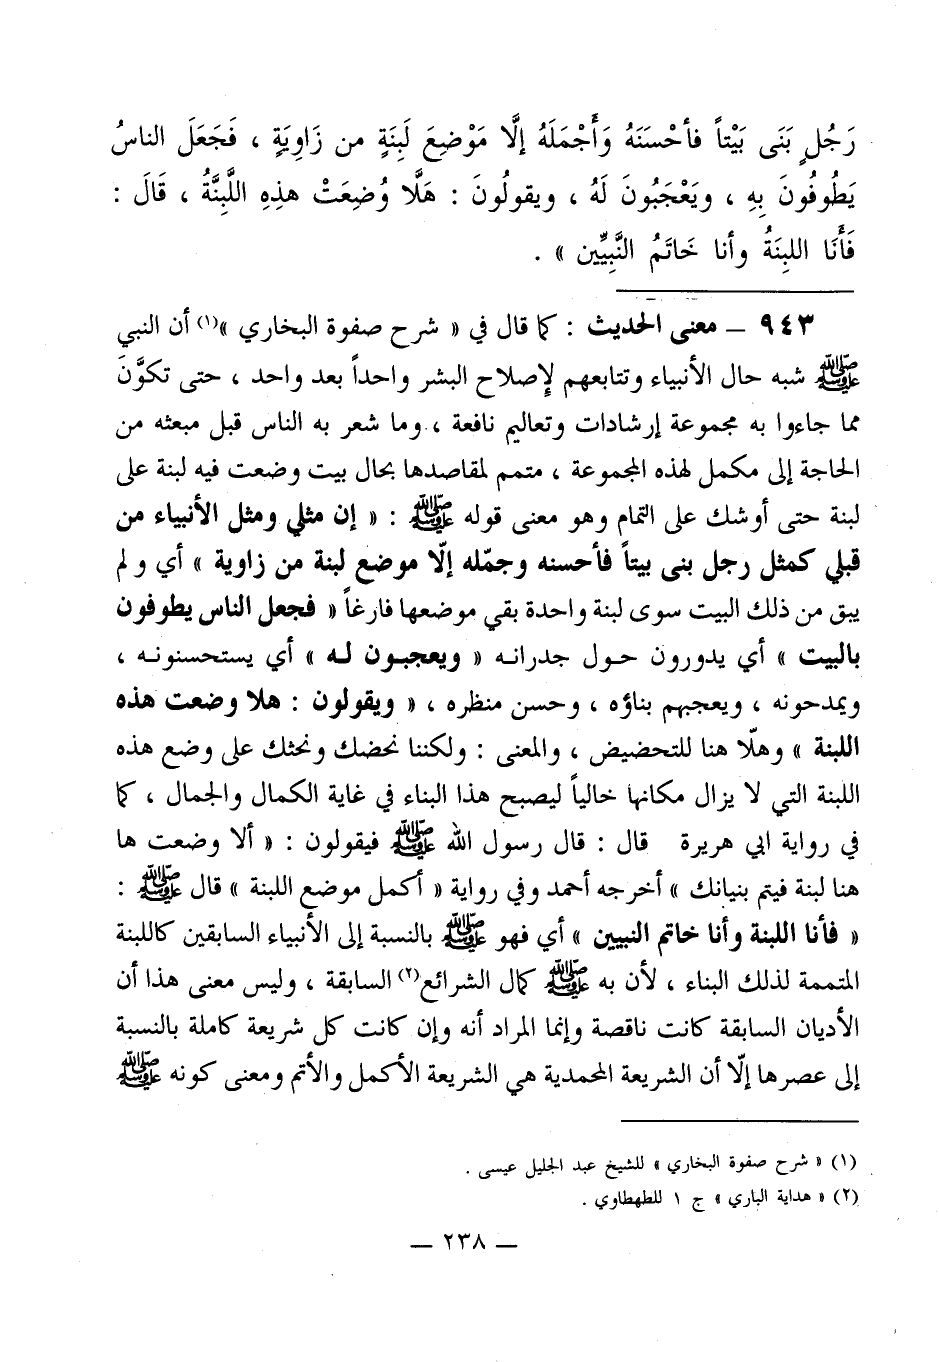 رَجُلٍ بَنَى بَيْتاً فأحْسَنَهُ وَأَجْمَلَهُ إلَّا مَوْضِعَ لَبِنَةٍ من زَاوِيَةٍ ، فَجَعَلَ الناسُ
يَطُوفُونَ بِهِ ، ويَعْجَبُونَ لَهُ ، ويقولُونَ : هَلَّا وُضِعَتْ هذِهِ اللَّبِنَّةُ ، قَالَ :
فَأَنَا اللبِنَةُ وأنا خَاتَمُ النَّبِيِّين » .
٩٤٣ – معنى الحديث : كما قال في « شرح صفوة البخاري »(١) أن النبي
ﷺ شبه حال الأنبياء وتتابعهم لإصلاح البشر واحداً بعد واحد ، حتى تكوَّنَ
مما جاءوا به مجموعة إرشادات وتعاليم نافعة ، وما شعر به الناس قبل مبعثه من
الحاجة إلى مكمل لهذه المجموعة ، متمم لمقاصدها بحال بيت وضعت فيه لبنة على
لبنة حتى أوشك على التمام وهو معنى قوله ﷺ : « إن مثلي ومثل الأنبياء من
قبلي كمثل رجل بنى بيتاً فأحسنه وجمّله إلّا موضع لبنة من زاوية » أي ولم
يبق من ذلك البيت سوى لبنة واحدة بقي موضعها فارغاً « فجعل الناس يطوفون
بالبيت » أي يدورون حول جدرانه « ويعجبون له » أي يستحسنونه ،
ويمدحونه ، ويعجبهم بناؤه ، وحسن منظره ، « ويقولون : هلا وضعت هذه
اللبنة » وهلّا هنا للتحضيض ، والمعنى : ولكننا نحضك ونحثك على وضع هذه
اللبنة التي لا يزال مكانها خالياً ليصبح هذا البناء في غاية الكمال والجمال ، كما
في رواية ابي هريرة قال : قال رسول الله ﷺ فيقولون : « ألا وضعت ها
هنا لبنة فيتم بنيانك » أخرجه أحمد وفي رواية « أكمل موضع اللبنة » قال ﷺ :
« فأنا اللبنة وأنا خاتم النبيين » أي فهو ﷺ بالنسبة إلى الأنبياء السابقين كاللبنة
المتممة لذلك البناء ، لأن به ﷺ كمال الشرائع(٢) السابقة ، وليس معنى هذا أن
الأديان السابقة كانت ناقصة وإنما المراد أنه وإن كانت كل شريعة كاملة بالنسبة
إلى عصرها إلّا أن الشريعة المحمدية هي الشريعة الأكمل والأتم ومعنى كونه ﷺ
(١) « شرح صفوة البخاري » للشيخ عبد الجليل عيسى .
(٢) « هداية الباري » ج ١ للطهطاوي .
— ٢٣٨ —